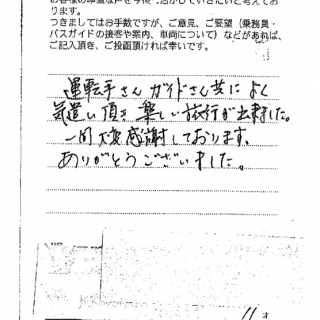 お客様の貴重な声を今後に活かしていきたいと考えてお
ります。
つきましてはお手数ですが、ご意見、ご要望（乗務員・
バスガイドの接客や案内、車両について）などがあれば、
ご記入頂き、ご投函頂ければ幸いです。
運転手さん ガイドさん共に よく
気遣い頂き 楽しい旅行が出来ました。
一同大変感謝しております。
ありがとうございました。